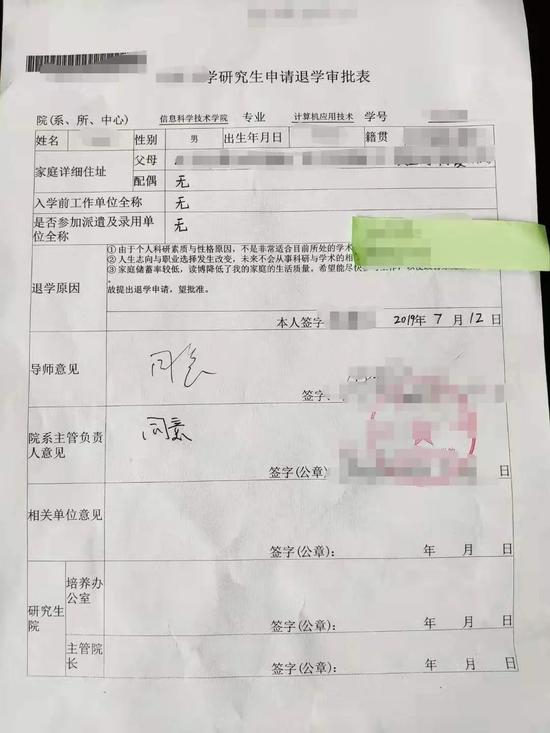 学研究生申请退学审批表
院(系、所、中心) 信息科学技术学院 专业 计算机应用技术 学号
姓名 性别 男 出生年月日 籍贯
家庭详细住址 父母
配偶 无
入学前工作单位全称 无
是否参加派遣及录用单位全称 无
退学原因
① 由于个人科研素质与性格原因，不是非常适合目前所处的学术
② 人生志向与职业选择发生改变，未来不会从事科研与学术的相
③ 家庭储蓄率较低，读博降低了我的家庭的生活质量，希望能尽快
故提出退学申请，望批准。
本人签字 2019年 7 月 12 日
导师意见 同意
签字:
院系主管负责人意见 同意
签字(公章) 日
相关单位意见
签字(公章): 年 月 日
研究生院
培养办公室
签字(公章): 年 月 日
主管院长
签字(公章): 年 月 日